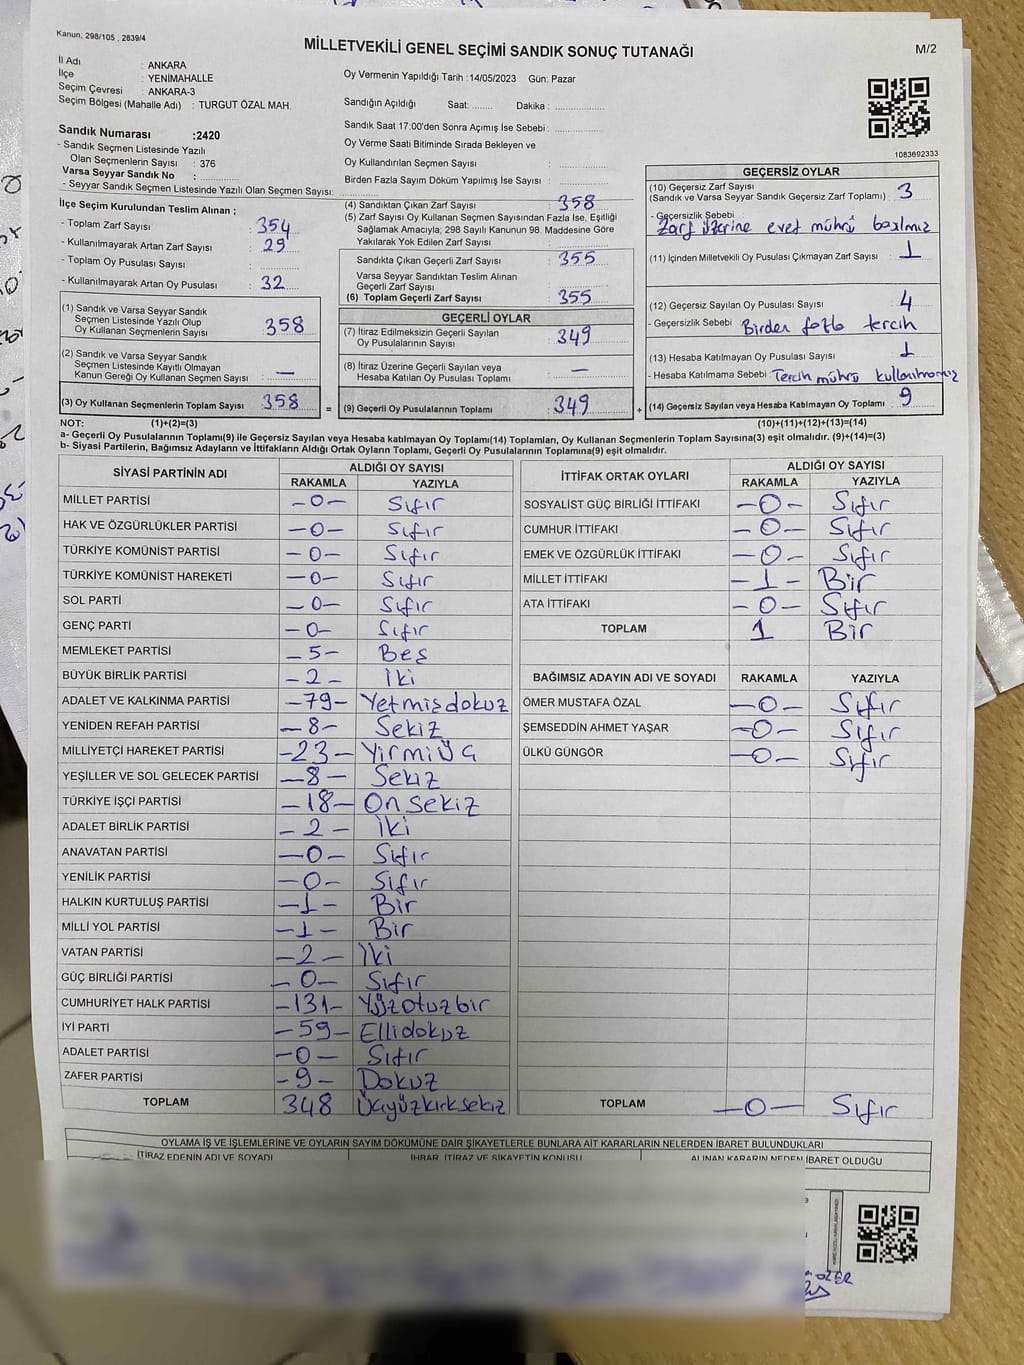 Kanun, 298/105 , 2839/4
MİLLETVEKİLİ GENEL SEÇİMİ SANDIK SONUÇ TUTANAĞI
M/2
İl Adı : ANKARA
İlçe : YENİMAHALLE
Seçim Çevresi : ANKARA-3
Seçim Bölgesi (Mahalle Adı) : TURGUT ÖZAL MAH.
Sandık Numarası :2420
- Sandık Seçmen Listesinde Yazılı
Olan Seçmenlerin Sayısı : 376
Varsa Seyyar Sandık No :
- Seyyar Sandık Seçmen Listesinde Yazılı Olan Seçmen Sayısı:
Oy Vermenin Yapıldığı Tarih :14/05/2023 Gün: Pazar
Sandığın Açıldığı Saat: ........ Dakika : ....................
Sandık Saat 17:00'den Sonra Açımış İse Sebebi: ....................
Oy Verme Saati Bitiminde Sırada Bekleyen ve
Oy Kullandırılan Seçmen Sayısı :
Birden Fazla Sayım Döküm Yapılmış İse Sayısı :
1083692333
İlçe Seçim Kurulundan Teslim Alınan ;
- Toplam Zarf Sayısı : 354
- Kullanılmayarak Artan Zarf Sayısı : 29
- Toplam Oy Pusulası Sayısı :
- Kullanılmayarak Artan Oy Pusulası : 32
(1) Sandık ve Varsa Seyyar Sandık
Seçmen Listesinde Yazılı Olup
Oy Kullanan Seçmenlerin Sayısı : 358
(2) Sandık ve Varsa Seyyar Sandık
Seçmen Listesinde Kayıtlı Olmayan
Kanun Gereği Oy Kullanan Seçmen Sayısı : —
(3) Oy Kullanan Seçmenlerin Toplam Sayısı : 358 =
(4) Sandıktan Çıkan Zarf Sayısı : 358
(5) Zarf Sayısı Oy Kullanan Seçmen Sayısından Fazla İse, Eşitliği
Sağlamak Amacıyla; 298 Sayılı Kanunun 98. Maddesine Göre
Yakılarak Yok Edilen Zarf Sayısı :
Sandıkta Çıkan Geçerli Zarf Sayısı : 355
Varsa Seyyar Sandıktan Teslim Alınan
Geçerli Zarf Sayısı :
(6) Toplam Geçerli Zarf Sayısı : 355
GEÇERLİ OYLAR
(7) İtiraz Edilmeksizin Geçerli Sayılan
Oy Pusulalarının Sayısı : 349
(8) İtiraz Üzerine Geçerli Sayılan veya
Hesaba Katılan Oy Pusulası Toplamı : —
(9) Geçerli Oy Pusulalarının Toplamı : 349 +
GEÇERSİZ OYLAR
(10) Geçersiz Zarf Sayısı
(Sandık ve Varsa Seyyar Sandık Geçersiz Zarf Toplamı) : 3
- Geçersizlik Sebebi :
Zarf üzerine evet mührü basılmış
(11) İçinden Milletvekili Oy Pusulası Çıkmayan Zarf Sayısı : 1
(12) Geçersiz Sayılan Oy Pusulası Sayısı : 4
- Geçersizlik Sebebi : Birden fazla tercih
(13) Hesaba Katılmayan Oy Pusulası Sayısı : 1
- Hesaba Katılmama Sebebi : Tercih mührü kullanılmamış
(14) Geçersiz Sayılan veya Hesaba Katılmayan Oy Toplamı : 9
NOT: (1)+(2)=(3)
(10)+(11)+(12)+(13)=(14)
a- Geçerli Oy Pusulalarının Toplamı(9) ile Geçersiz Sayılan veya Hesaba katılmayan Oy Toplamı(14) Toplamları, Oy Kullanan Seçmenlerin Toplam Sayısına(3) eşit olmalıdır. (9)+(14)=(3)
b- Siyasi Partilerin, Bağımsız Adayların ve İttifakların Aldığı Oyların Toplamı, Geçerli Oy Pusulalarının Toplamına(9) eşit olmalıdır.
SİYASİ PARTİNİN ADI
ALDIĞI OY SAYISI
RAKAMLA YAZIYLA
MİLLET PARTİSİ -0- Sıfır
HAK VE ÖZGÜRLÜKLER PARTİSİ -0- Sıfır
TÜRKİYE KOMÜNİST PARTİSİ -0- Sıfır
TÜRKİYE KOMÜNİST HAREKETİ -0- Sıfır
SOL PARTİ -0- Sıfır
GENÇ PARTİ -0- Sıfır
MEMLEKET PARTİSİ -5- Beş
BÜYÜK BİRLİK PARTİSİ -2- İki
ADALET VE KALKINMA PARTİSİ -79- Yetmişdokuz
YENİDEN REFAH PARTİSİ -8- Sekiz
MİLLİYETÇİ HAREKET PARTİSİ -23- Yirmiüç
YEŞİLLER VE SOL GELECEK PARTİSİ -8- Sekiz
TÜRKİYE İŞÇİ PARTİSİ -18- Onsekiz
ADALET BİRLİK PARTİSİ -2- İki
ANAVATAN PARTİSİ -0- Sıfır
YENİLİK PARTİSİ -0- Sıfır
HALKIN KURTULUŞ PARTİSİ -1- Bir
MİLLİ YOL PARTİSİ -1- Bir
VATAN PARTİSİ -2- İki
GÜÇ BİRLİĞİ PARTİSİ -0- Sıfır
CUMHURİYET HALK PARTİSİ -131- Yüzotuzbir
İYİ PARTİ -59- Ellidokuz
ADALET PARTİSİ -0- Sıfır
ZAFER PARTİSİ -9- Dokuz
TOPLAM 348 Üçyüzkırksekiz
İTTİFAK ORTAK OYLARI
ALDIĞI OY SAYISI
RAKAMLA YAZIYLA
SOSYALİST GÜÇ BİRLİĞİ İTTİFAKI -0- Sıfır
CUMHUR İTTİFAKI -0- Sıfır
EMEK VE ÖZGÜRLÜK İTTİFAKI -0- Sıfır
MİLLET İTTİFAKI -1- Bir
ATA İTTİFAKI -0- Sıfır
TOPLAM 1 Bir
BAĞIMSIZ ADAYIN ADI VE SOYADI RAKAMLA YAZIYLA
ÖMER MUSTAFA ÖZAL -0- Sıfır
ŞEMSEDDİN AHMET YAŞAR -0- Sıfır
ÜLKÜ GÜNGÖR -0- Sıfır
TOPLAM -0- Sıfır
OYLAMA İŞ VE İŞLEMLERİNE VE OYLARIN SAYIM DÖKÜMÜNE DAİR ŞİKAYETLERLE BUNLARA AİT KARARLARIN NELERDEN İBARET BULUNDUKLARI
İTİRAZ EDENİN ADI VE SOYADI İHBAR, İTİRAZ VE ŞİKAYETİN KONUSU ALINAN KARARIN NEDEN İBARET OLDUĞU